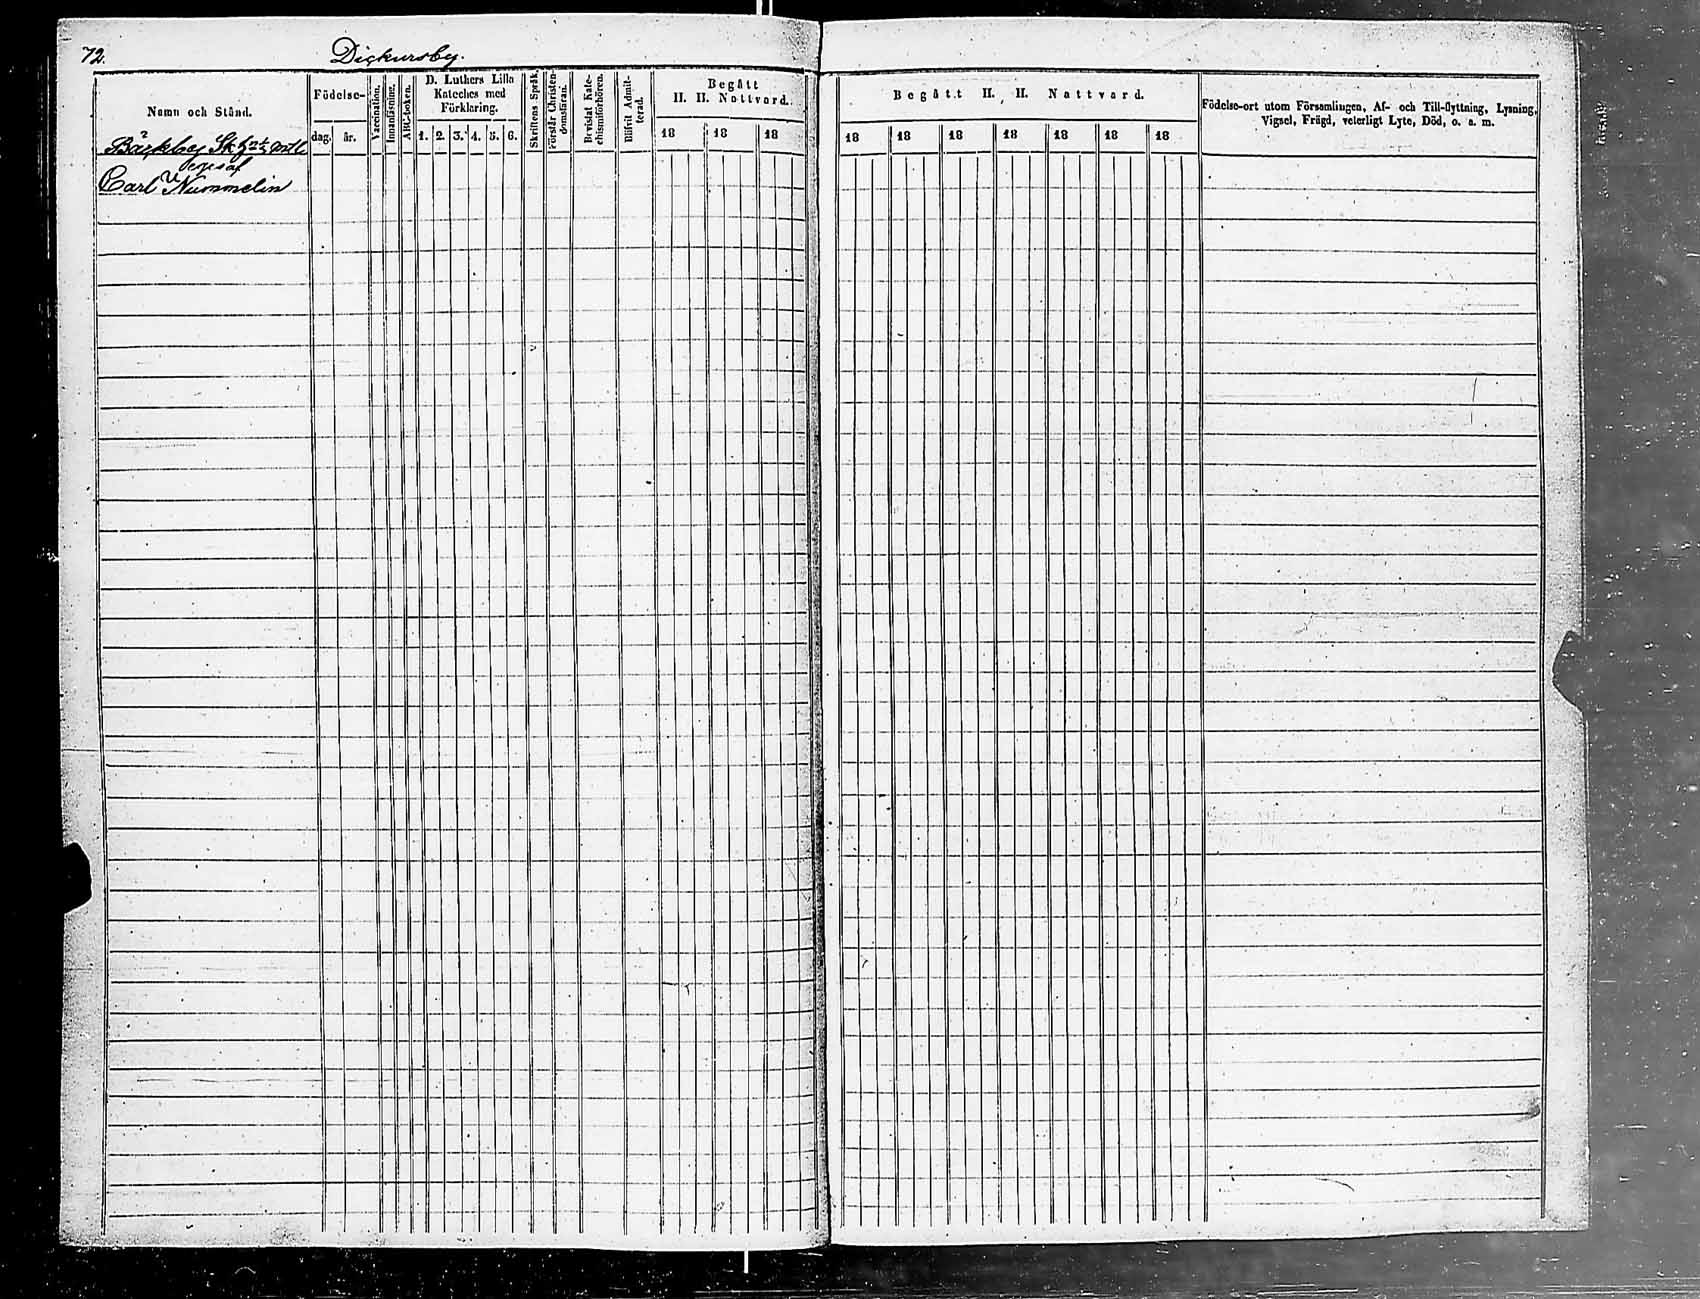 72.
Dickursby.
Namn och Stånd.
Födelse-
dag. år.
Vaccination.
Innanläsning.
ABC-boken.
D. Luthers Lilla
Kateches med
Förklaring.
1. 2. 3. 4. 5. 6.
Skriftens Språk.
Förstår Christen-
domsläran.
Bevistat Kate-
chismiförhören.
Blifvit Admit-
terad.
Begått
H. H. Nattvard.
18 18 18
Begått H. H. Nattvard.
18 18 18 18 18 18 18
Födelse-ort utom Församlingen, Af- och Till-flyttning, Lysning,
Vigsel, Frägd, veterligt Lyte, Död, o. s. m.
Bäckby Sk
eges af
Carl Nummelin